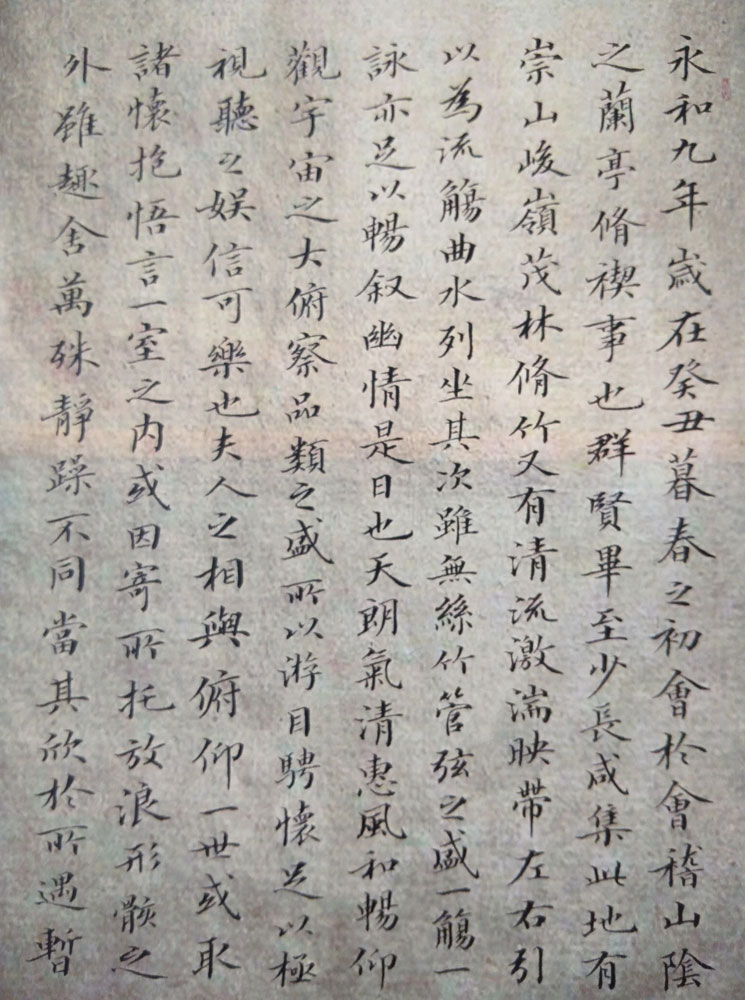 永和九年歲在癸丑暮春之初會於會稽山陰
之蘭亭脩禊事也群賢畢至少長咸集此地有
崇山峻嶺茂林脩竹又有清流激湍映帶左右引
以為流觴曲水列坐其次雖無絲竹管弦之盛一觴一
詠亦足以暢叙幽情是日也天朗氣清惠風和暢仰
觀宇宙之大俯察品類之盛所以游目騁懷足以極
視聽之娛信可樂也夫人之相與俯仰一世或取
諸懷抱悟言一室之内或因寄所托放浪形骸之
外雖趣舍萬殊靜躁不同當其欣於所遇暫